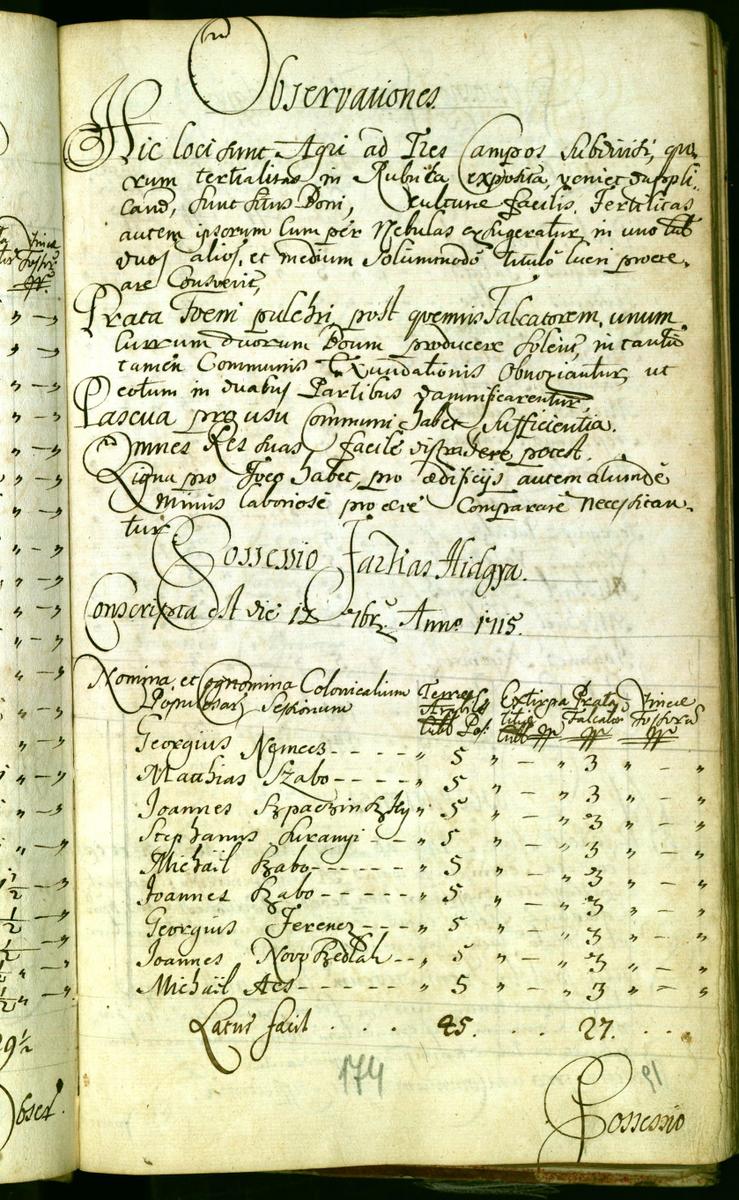 Observationes
Hic loci sunt Agri ad Tres Campos Subdivisi, quo,
rum tertialitas in Rubrica exposita, veniet duppli,
cand, sunt situs Boni, culturæ facilis. Fertilitas
autem ipsorum cum per Nebulas exsugeratur in uno
duos alios, et medium solummodo titulo lucri procre,
are Consuevit,
Prata Foeni pulchri, post quemvis Falcatorem, unum
currum duorum Boum producere solent, in tantum
tamen Communis Exundationis Obnoxiantur, ut
in duabus Partibus damnificarentur,
Pascua pro usu Communi habet Sufficientia.
Omnes Res suas facile distrahere potest.
Ligna pro Foco habet, pro ædificijs autem aliunde
Minus laboriose Comparare Necessitan,
tur
Possessio Farkas Hidgya.
Conscripta est die 12 7br. Anno 1715.
Nomina et Cognomina Colonicalium
Populosar. Sessionum
Terres Arabiles Pos.
Extirpatitiæ
Prata Falcator
Vineæ Fossorum
Georgius Nemecz - - - - " 5 " - " 3 " - "
Matthias Szabo - - - - " 5 " - " 3 " - "
Joannes Szpaczinszky " 5 " - " 3 " - "
Stephanus Suranyi - - " 5 " - " 3 " - "
Michäil Szabo - - - - - " 5 " - " 3 " - "
Joannes Szabo - - - - - " 5 " - " 3 " - "
Georgius Ferencz - - - " 5 " - " 3 " - "
Joannes Novoszedlah - - " 5 " - " 3 " - "
Michäil Acs - - - - - " 5 " - " 3 " - "
Latus facit . . . 45. . . 27. . .
174
91
Possessio
Vineæ
Fossr.
29 ½
Obser.